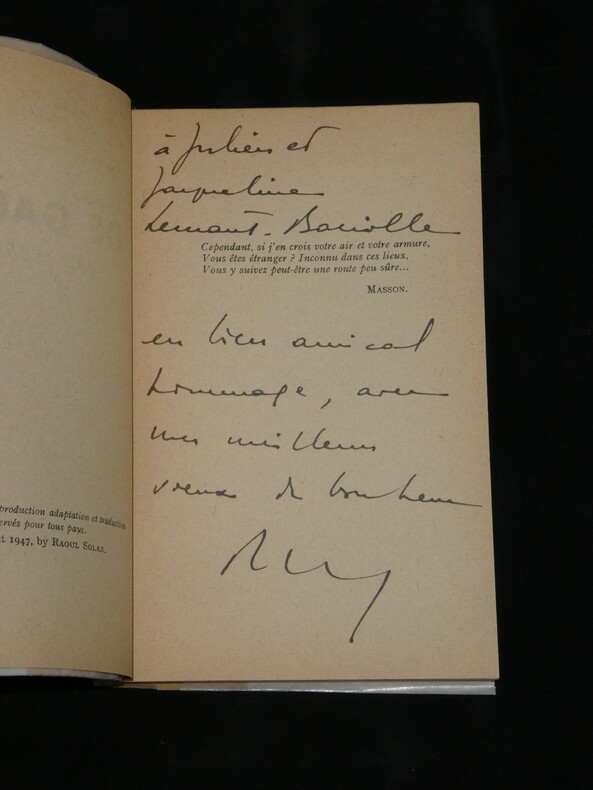 à Julien et
Jacqueline
Lemant-
Cependant, si j'en crois votre air et votre armure,
Vous êtes étranger ? Inconnu dans ces lieux.
Vous y suivez peut-être une route peu sûre...
MASSON.
en bien amical
hommage, avec
mes meilleurs
voeux de bonheur
production adaptation et traduction
ervés pour tous pays.
t 1947, by RAOUL SOLAR.